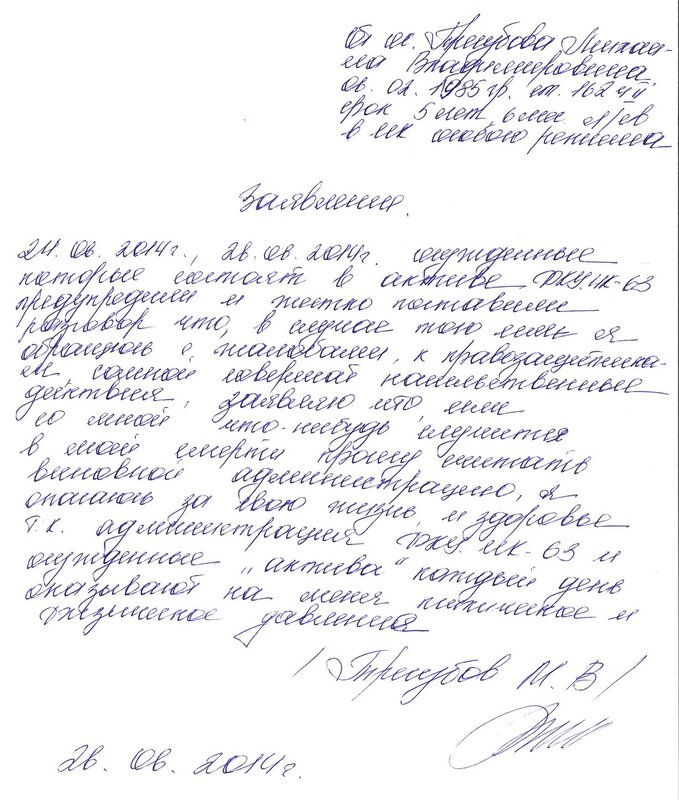 От ос. Трегубова Михаи-
ла Владимировича
06. 02. 1985 гр. ст. 162 ч II
срок 5 лет 6 мес. л/св
в ИК особого режима
Заявления.
24. 06. 2014г., 26. 06. 2014г. осужденные
которые состоят в активе ФКУ ИК-63
предупредили и жестко поставили
разговор что, в случае того если я
обращюсь с жалобами, к правозащитника-
м, сомной совершат насильственные
действия, заявляю что, если
со мной что-нибудь случится
в моей смерти прошу считать
виновной администрацию, я
опасаюсь за свою жизнь и здоровье
т.к. администрация ФКУ ИК-63 и
осужденные "актива" каждый день
оказывают на меня психическое и
физическое давления
/ Трегубов М. В /
26. 06. 2014г.